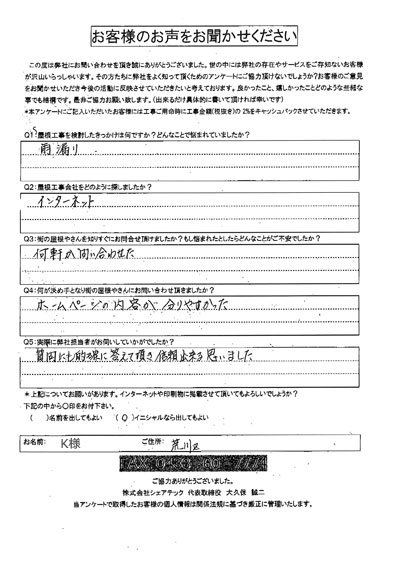 お客様のお声をお聞かせください
この度は弊社にお問い合わせを頂き誠にありがとうございました。世の中には弊社の存在やサービスをご存知ないお客様
が沢山いらっしゃいます。その方たちに弊社をよく知って頂くためのアンケートにご協力頂けないでしょうか?お客様のご意見
をお聞かせいただき今後の活動に反映させていただきたいと考えております。良かったこと、嬉しかったことどのような些細な
事でも結構です。是非ご協力お願い致します。(出来るだけ具体的に書いて頂ければ幸いです)
*本アンケートにご記入いただいたお客様には工事ご用命時に工事金額(税抜き)の2%をキャッシュバックさせていただきます。
Q1:屋根工事を検討したきっかけは何ですか?どんなことで悩まれていましたか?
雨漏り
Q2:屋根工事会社をどのように探しましたか?
インターネット
Q3:街の屋根やさんを知りすぐにお問合せ頂けましたか?もし悩まれたとしたらどんなことがご不安でしたか?
何軒か問い合わせた
Q4:何が決め手となり街の屋根やさんにお問い合わせ頂きましたか?
ホームページの内容が分りやすかった
Q5:実際に弊社担当者がお伺いしていかがでしたか?
質問にも的確に答えて頂き依頼出来る思いました
*上記についてお願いがあります。インターネットや印刷物に掲載させて頂いてもよろしいでしょうか?
下記の中から〇印をお付下さい。
( )名前を出してもよい (〇)イニシャルなら出してもよい
お名前: K様 ご住所: 荒川区
ご協力ありがとうございました。
株式会社シェアテック 代表取締役 大久保 誠二
当アンケートで取得したお客様の個人情報は関係法規に基づき厳正に管理いたします。